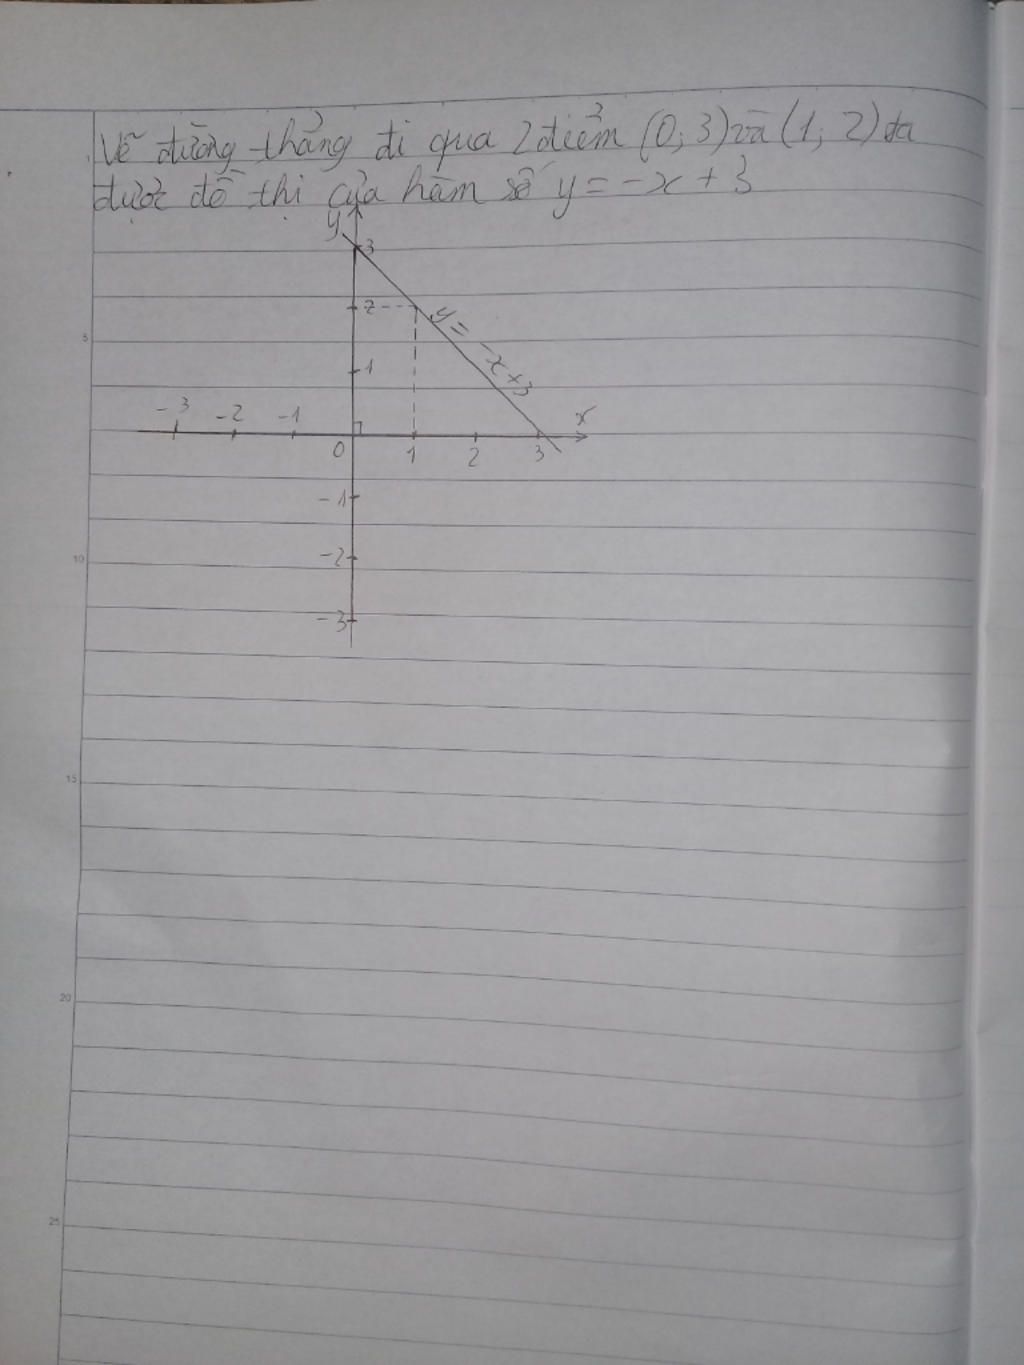 Vẽ đường thẳng đi qua 2 điểm (0; 3) và (1; 2) ta
được đồ thị của hàm số y = -x + 3
y
3
2
y = -x + 3
1
-3 -2 -1
x
0 1 2 3
-1
-2
-3
5
10
15
20
25